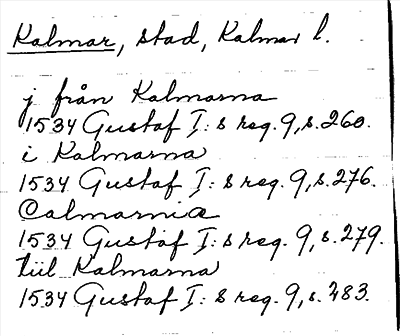 Kalmar, stad, Kalmar l.
j från Kalmarna
1534 Gustaf I: s reg. 9, s. 260.
i Kalmarna
1534 Gustaf I: s reg. 9, s. 276.
Calmarnia
1534 Gustaf I: s reg. 9, s. 279.
till Kalmarna
1534 Gustaf I: s reg. 9, s. 483.